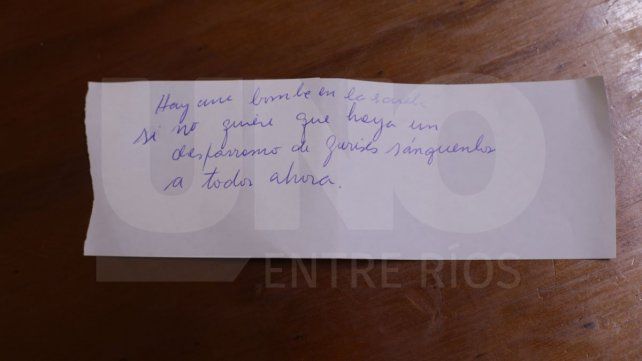 Hay una bomba en la escuela
si no quiere que haya un
desparramo de gurises sanquenlos
a todos ahora.
UNO
ENTRE RIOS